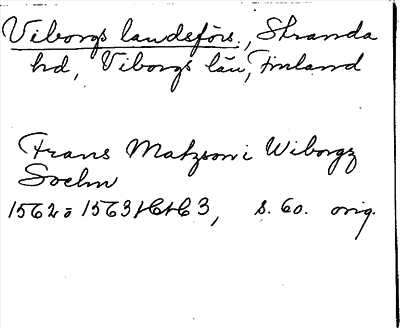 Viborgs landsförs., Stranda
hd, Viborgs län, Finland
Frans Matzson i Wiborgz
Sochn
1562 1563, s. 60. orig.